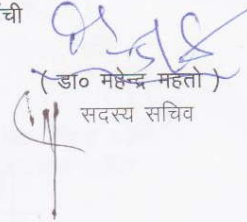 ची
( डा० महेन्द्र महतो )
सदस्य सचिव